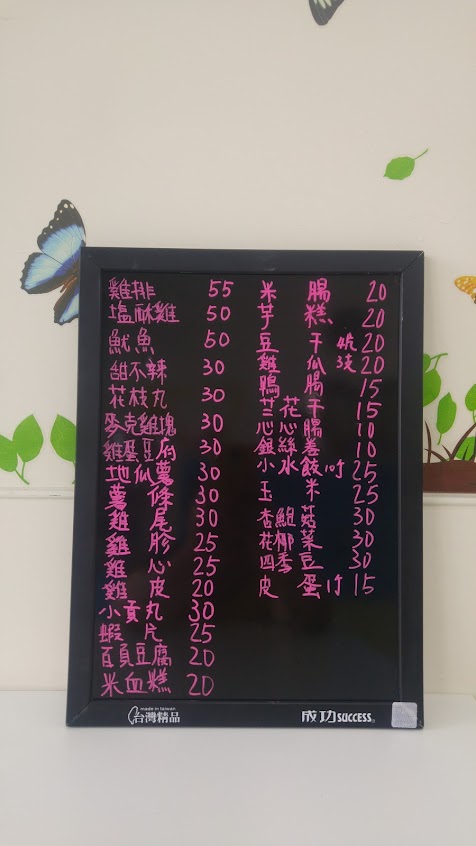 雞排 55
塩酥雞 50
魷魚 50
甜不辣 30
花枝丸 30
麥克雞塊 30
雞蛋豆腐 30
地瓜薯 30
薯條 30
雞尾 30
雞胗 25
雞心 25
雞皮 20
小貢丸 30
蝦片 25
百頁豆腐 20
米血糕 20
米腸 20
芋糕 20
豆干 20
雞瓜 20
鴨腸 15
花干 15
心心腸 10
銀絲卷 10
小水餃 10 25
玉米 25
杏鮑菇 30
花椰菜 30
四季豆 30
皮蛋 15
made in taiwan
台灣精品
成功 SUCCESS